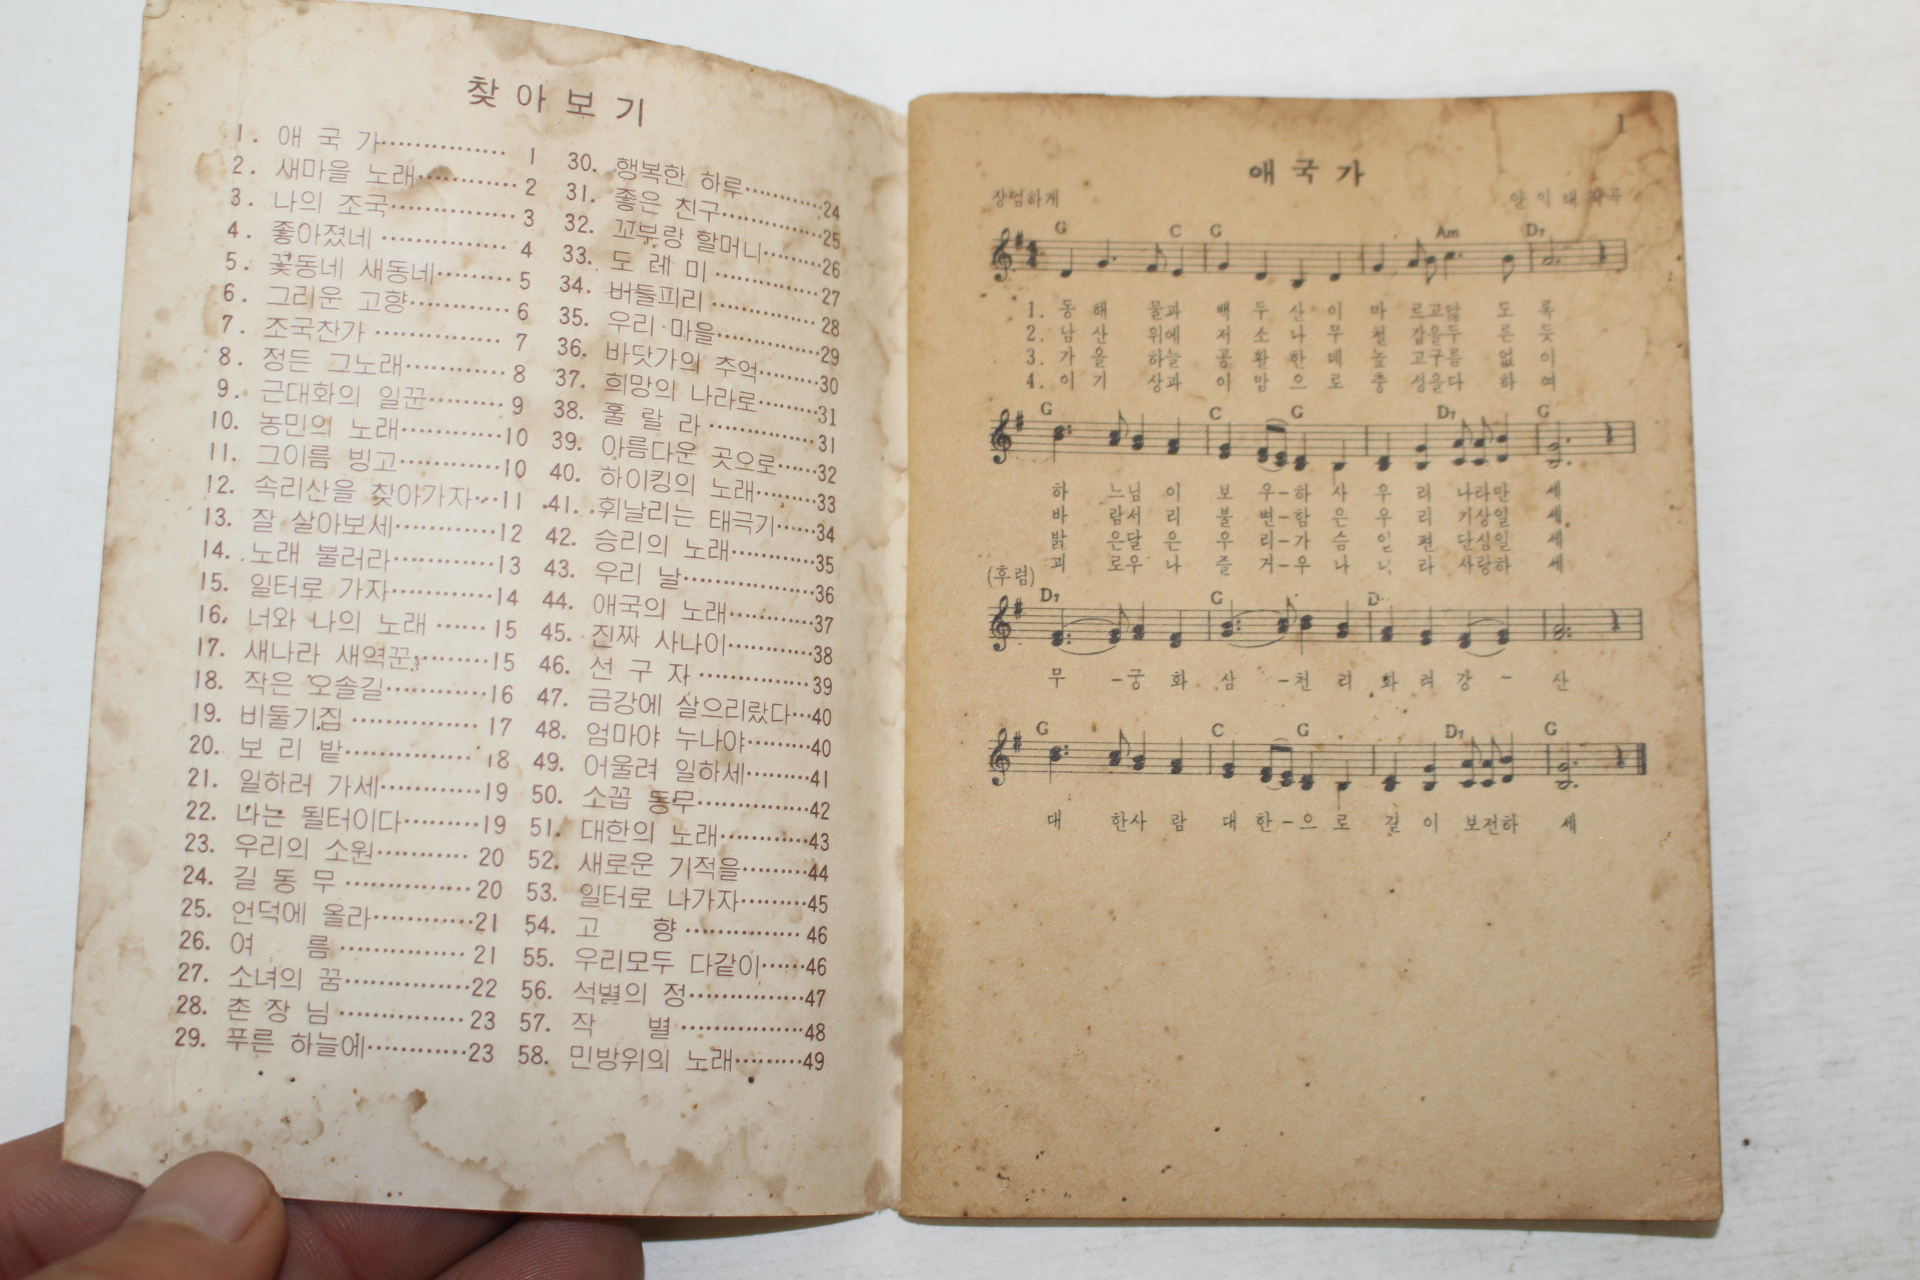 찾아보기
1. 애 국 가 ⋯⋯ 1
2. 새마을 노래 ⋯⋯ 2
3. 나의 조국 ⋯⋯ 3
4. 좋아졌네 ⋯⋯ 4
5. 꽃동네 새동네 ⋯⋯ 5
6. 그리운 고향 ⋯⋯ 6
7. 조국찬가 ⋯⋯ 7
8. 정든 그노래 ⋯⋯ 8
9. 근대화의 일꾼 ⋯⋯ 9
10. 농민의 노래 ⋯⋯ 10
11. 그이름 빙고 ⋯⋯ 10
12. 속리산을 찾아가자 ⋯⋯ 11
13. 잘 살아보세 ⋯⋯ 12
14. 노래 불러라 ⋯⋯ 13
15. 일터로 가자 ⋯⋯ 14
16. 너와 나의 노래 ⋯⋯ 15
17. 새나라 새역꾼 ⋯⋯ 15
18. 작은 오솔길 ⋯⋯ 16
19. 비둘기집 ⋯⋯ 17
20. 보 리 밭 ⋯⋯ 18
21. 일하러 가세 ⋯⋯ 19
22. 나는 될터이다 ⋯⋯ 19
23. 우리의 소원 ⋯⋯ 20
24. 길 동 무 ⋯⋯ 20
25. 언덕에 올라 ⋯⋯ 21
26. 여 름 ⋯⋯ 21
27. 소녀의 꿈 ⋯⋯ 22
28. 촌 장 님 ⋯⋯ 23
29. 푸른 하늘에 ⋯⋯ 23
30. 행복한 하루 ⋯⋯ 24
31. 좋은 친구 ⋯⋯ 25
32. 꼬부랑 할머니 ⋯⋯ 26
33. 도 레 미 ⋯⋯ 27
34. 버들피리 ⋯⋯ 28
35. 우리 마을 ⋯⋯ 29
36. 바닷가의 추억 ⋯⋯ 30
37. 희망의 나라로 ⋯⋯ 31
38. 홀 랄 라 ⋯⋯ 31
39. 아름다운 곳으로 ⋯⋯ 32
40. 하이킹의 노래 ⋯⋯ 33
41. 휘날리는 태극기 ⋯⋯ 34
42. 승리의 노래 ⋯⋯ 35
43. 우리 날 ⋯⋯ 36
44. 애국의 노래 ⋯⋯ 37
45. 진짜 사나이 ⋯⋯ 38
46. 선 구 자 ⋯⋯ 39
47. 금강에 살으리랐다 ⋯⋯ 40
48. 엄마야 누나야 ⋯⋯ 40
49. 어울려 일하세 ⋯⋯ 41
50. 소꼽 동무 ⋯⋯ 42
51. 대한의 노래 ⋯⋯ 43
52. 새로운 기적을 ⋯⋯ 44
53. 일터로 나가자 ⋯⋯ 45
54. 고 향 ⋯⋯ 46
55. 우리모두 다같이 ⋯⋯ 46
56. 석별의 정 ⋯⋯ 47
57. 작 별 ⋯⋯ 48
58. 민방위의 노래 ⋯⋯ 49
1
애 국 가
장엄하게 안 익 태 작곡
G C G Am D7
1. 동 해 물과 백 두 산 이 마 르고닳 도 록
2. 남 산 위에 저 소 나 무 철 갑을두 른 듯
3. 가 을 하늘 공 활 한 데 높 고구름 없 이
4. 이 기 상과 이 맘 으 로 충 성을다 하 여
G C G D7 G
하 느님 이 보 우-하 사 우 리 나라만 세
바 람서 리 불 변-함 은 우 리 기상일 세
밝 은달 은 우 리-가 슴 일 편 단심일 세
괴 로우 나 즐 거-우 나 나 라 사랑하 세
(후렴)
D7 G D
무 -궁 화 삼 -천 리 화 려 강 - 산
G C G D7 G
대 한사 람 대 한-으 로 길 이 보전하 세